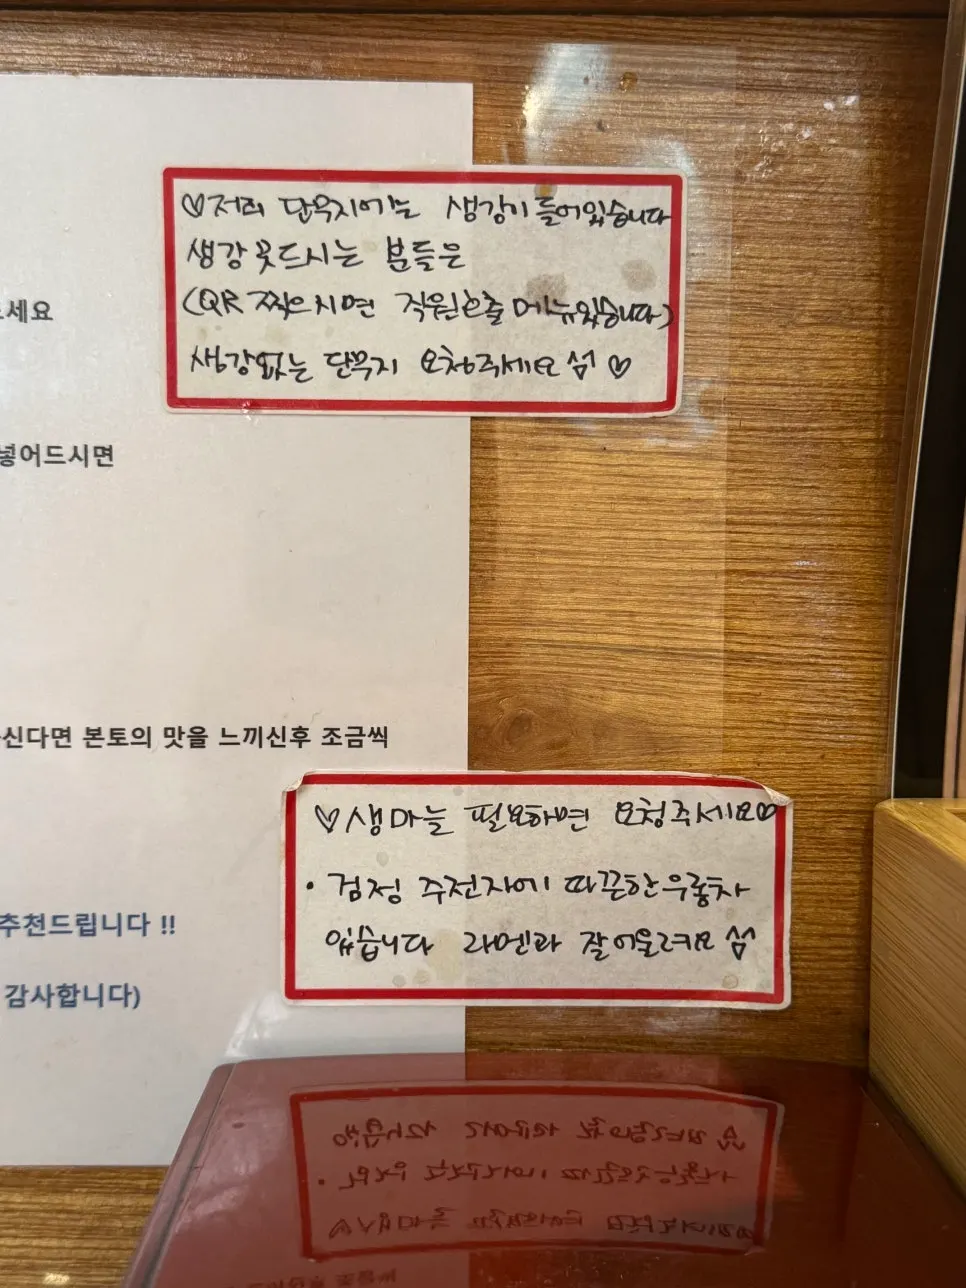 ♡저희 단무지에는 생강이 들어있습니다
생강 못드시는 분들은
(QR 찍으시면 직원호출 메뉴있습니다)
생강없는 단무지 요청주세요 섬 ♡
세요
넣어드시면
신다면 본토의 맛을 느끼신후 조금씩
♡생마늘 필요하면 요청주세요♡
· 검정 주전자에 따끈한우롱차
있습니다 라멘과 잘어울려요 섬
추천드립니다 !!
감사합니다)